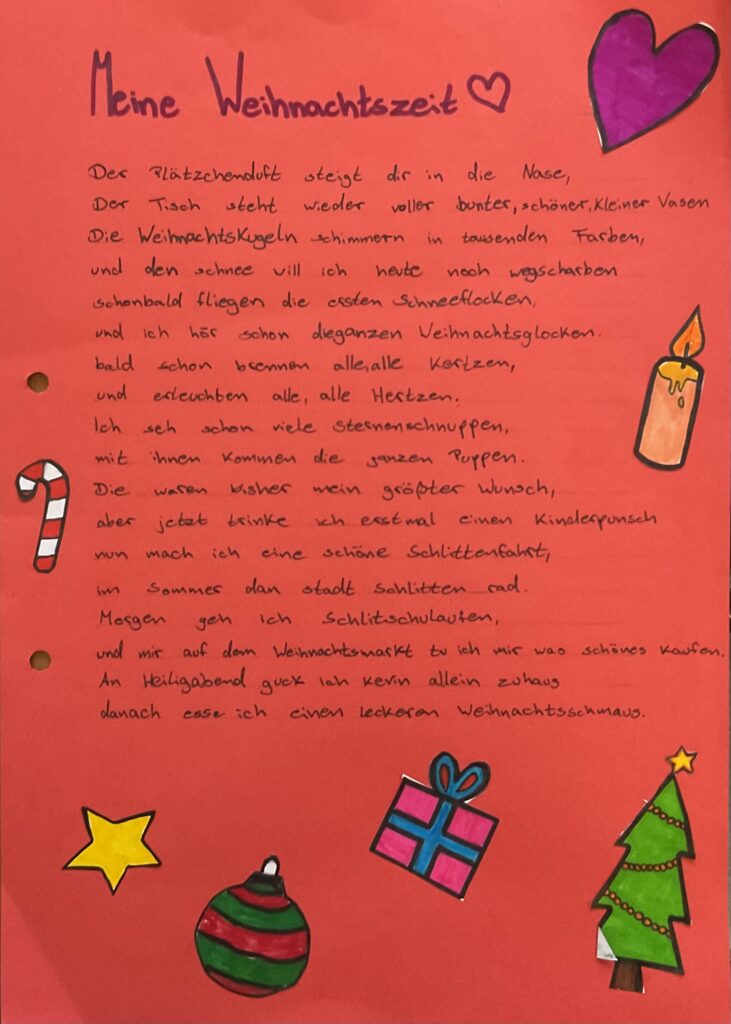 Meine Weihnachtszeit ♡
Der Plätzchenduft steigt dir in die Nase,
Der Tisch steht wieder voller bunter, schöner, kleiner Vasen
Die Weihnachtskugeln schimmern in tausenden Farben,
und den schnee will ich heute noch wegscharben
schonbald fliegen die ersten Schneeflocken,
und ich hör schon dieganzen Weihnachtsglocken.
bald schon brennen alle, alle Kertzen,
und erleuchten alle, alle Hertzen.
Ich seh schon viele Sternenschnuppen,
mit ihnen kommen die ganzen Puppen.
Die waren bisher mein größter Wunsch,
aber jetzt trinke ich erstmal einen Kinderpunsch
nun mach ich eine schöne Schlittenfahrt,
im Sommer dan stadt Schlitten rad.
Morgen geh ich Schlitschulaufen,
und mir auf dem Weihnachtsmarkt tu ich mir was schönes kaufen.
An Heiligabend guck ich kevin allein zuhaus
danach esse ich einen leckeren Weihnachtsschmaus.